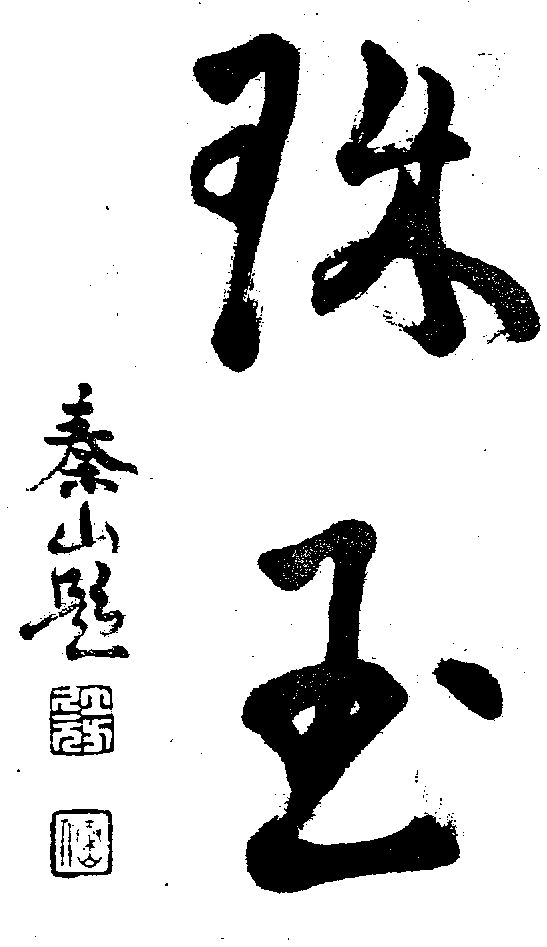 珠玉
秦山題